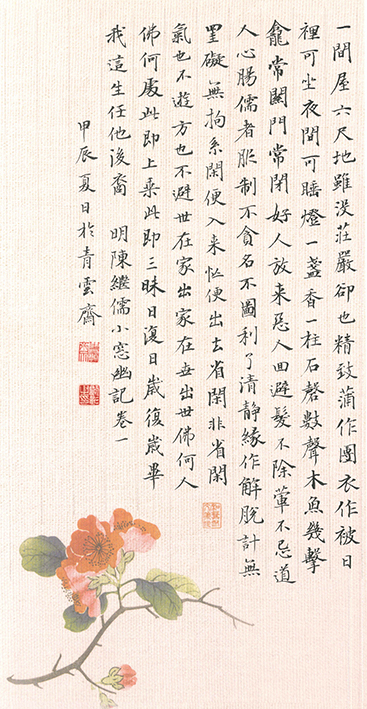 一間屋六尺地雖没莊嚴卻也精致蒲作團衣作被日
裡可坐夜間可睡燈一盞香一柱石磬數聲木魚幾擊
龕常關門常閉好人放來惡人回避髮不除葷不忌道
人心腸儒者服制不貪名不圖利了清靜緣作解脫計無
罣礙無拘系閑便入来忙便出去省閑非省閑
氣也不遊方也不避世在家出家在世出世佛何人
佛何處此即上乘此即三昧日復日歲復歲畢
我這生任他後裔　明陳繼儒小窓幽記卷一
甲辰夏日於青雲齋